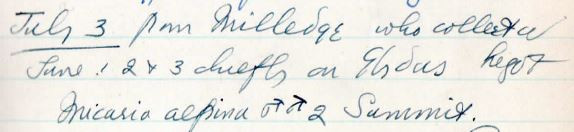 July 3 from Milledge who collected
June 1 2 & 3 chiefly on he got
Micaria alpina ♂♂ 2 Summit.